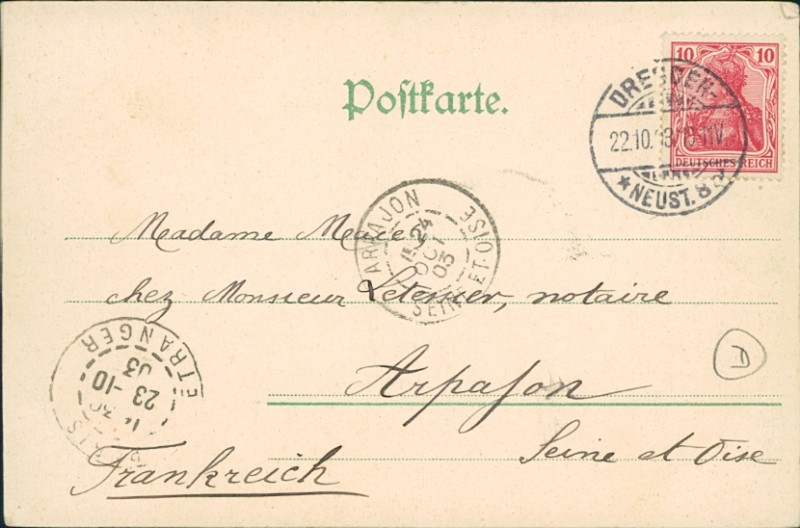 Postkarte.
10 10
DEUTSCHES REICH
DRESDEN-
22.10.03
* NEUST. 8
ARPAJON
24
OCT
03
SEINE-ET-OISE
Madame
chez Monsieur Letessier, notaire
Arpajon
Seine et Oise
Frankreich
ETRANGER
23 -10
03